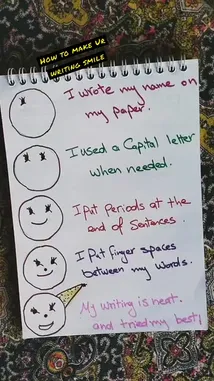 How to make Ur
writing smile
I wrote my name on
my paper.
I used a Capital letter
when needed.
I Put Periods at the
end of Sentences.
I Put finger spaces
between my words.
My writing is neat.
and tried my best!